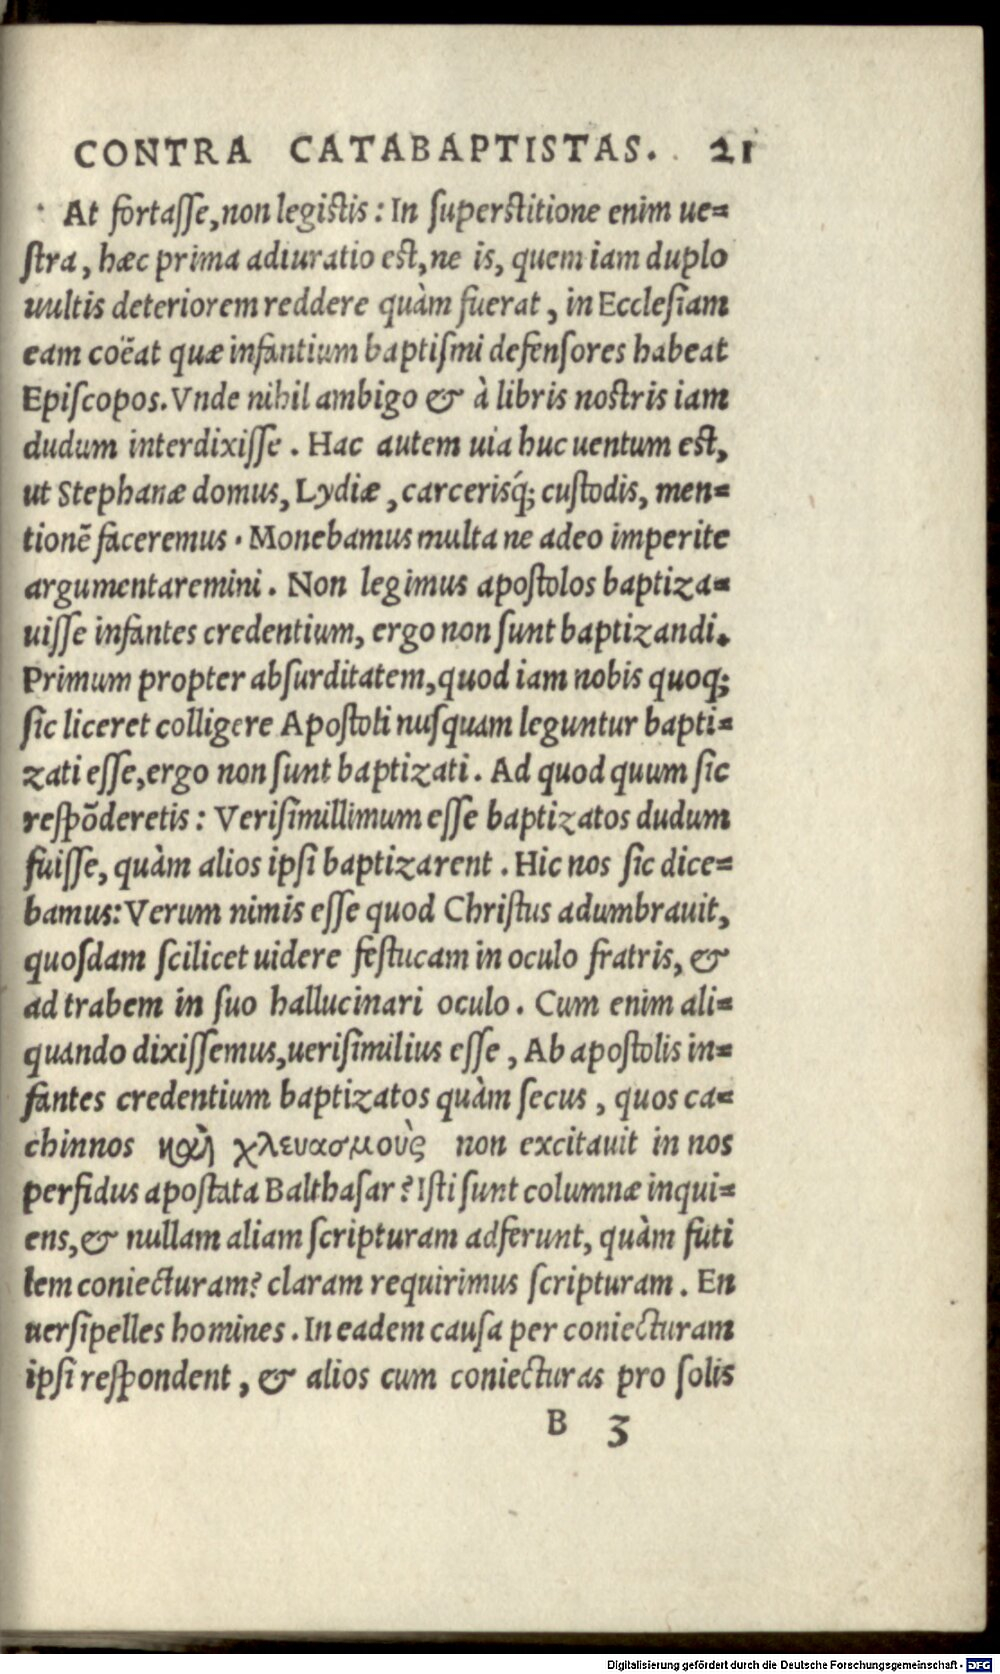 CONTRA CATABAPTISTAS. 21
At fortasse, non legistis: In superstitione enim ue=
stra, hæc prima adiuratio est, ne is, quem iam duplo
uultis deteriorem reddere quàm fuerat, in Ecclesiam
eam coëat quæ infantium baptismi defensores habeat
Episcopos. Vnde nihil ambigo & à libris nostris iam
dudum interdixisse. Hac autem uia huc uentum est,
ut Stephanæ domus, Lydiæ, carcerisq́; custodis, men=
tionē faceremus. Monebamus multa ne adeo imperite
argumentaremini. Non legimus apostolos baptiza=
uisse infantes credentium, ergo non sunt baptizandi.
Primum propter absurditatem, quod iam nobis quoq;
sic liceret colligere Apostoli nusquam leguntur bapti=
zati esse, ergo non sunt baptizati. Ad quod quum sic
respōderetis: Verisimillimum esse baptizatos dudum
fuisse, quàm alios ipsi baptizarent. Hic nos sic dice=
bamus: Verum nimis esse quod Christus adumbrauit,
quosdam scilicet uidere festucam in oculo fratris, &
ad trabem in suo hallucinari oculo. Cum enim ali=
quando dixissemus, uerisimilius esse, Ab apostolis in=
fantes credentium baptizatos quàm secus, quos ca=
chinnos καὶ χλευασμοὺς non excitauit in nos
perfidus apostata Balthasar? Isti sunt columnæ inqui=
ens, & nullam aliam scripturam adferunt, quàm futi
lem coniecturam? claram requirimus scripturam. En
uersipelles homines. In eadem causa per coniecturam
ipsi respondent, & alios cum coniecturas pro solis
B 3
Digitalisierung gefördert durch die Deutsche Forschungsgemeinschaft - DFG